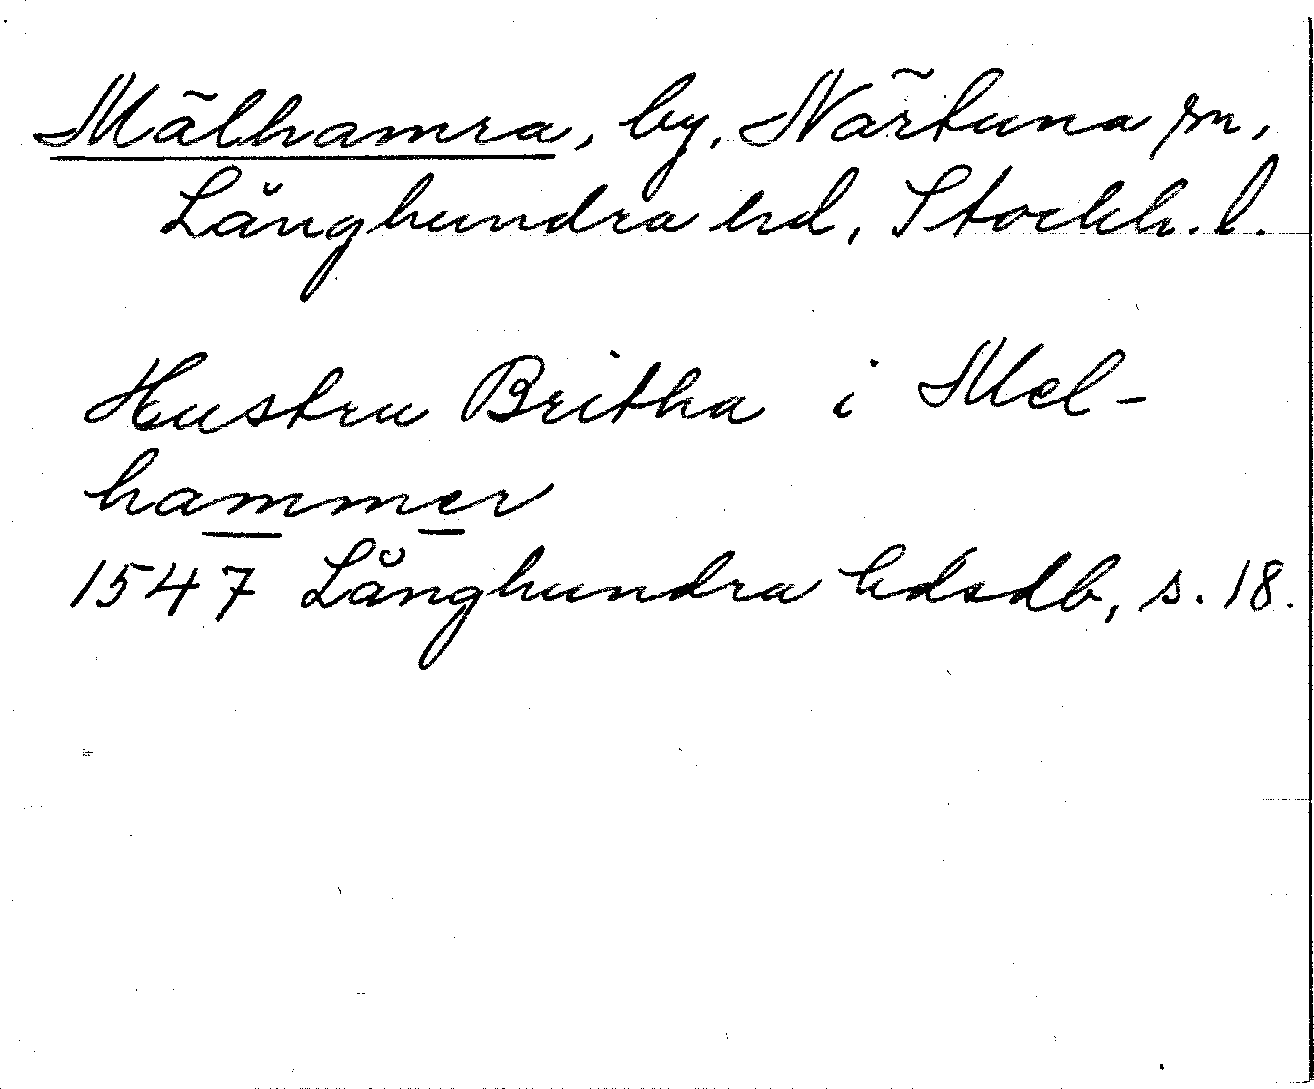 Mälhamra, by, Närtuna sn,
Långhundra hd, Stockh. l.
Hustru Britha i Mel-
hammer
1547 Långhundra hdsdb, s. 18.